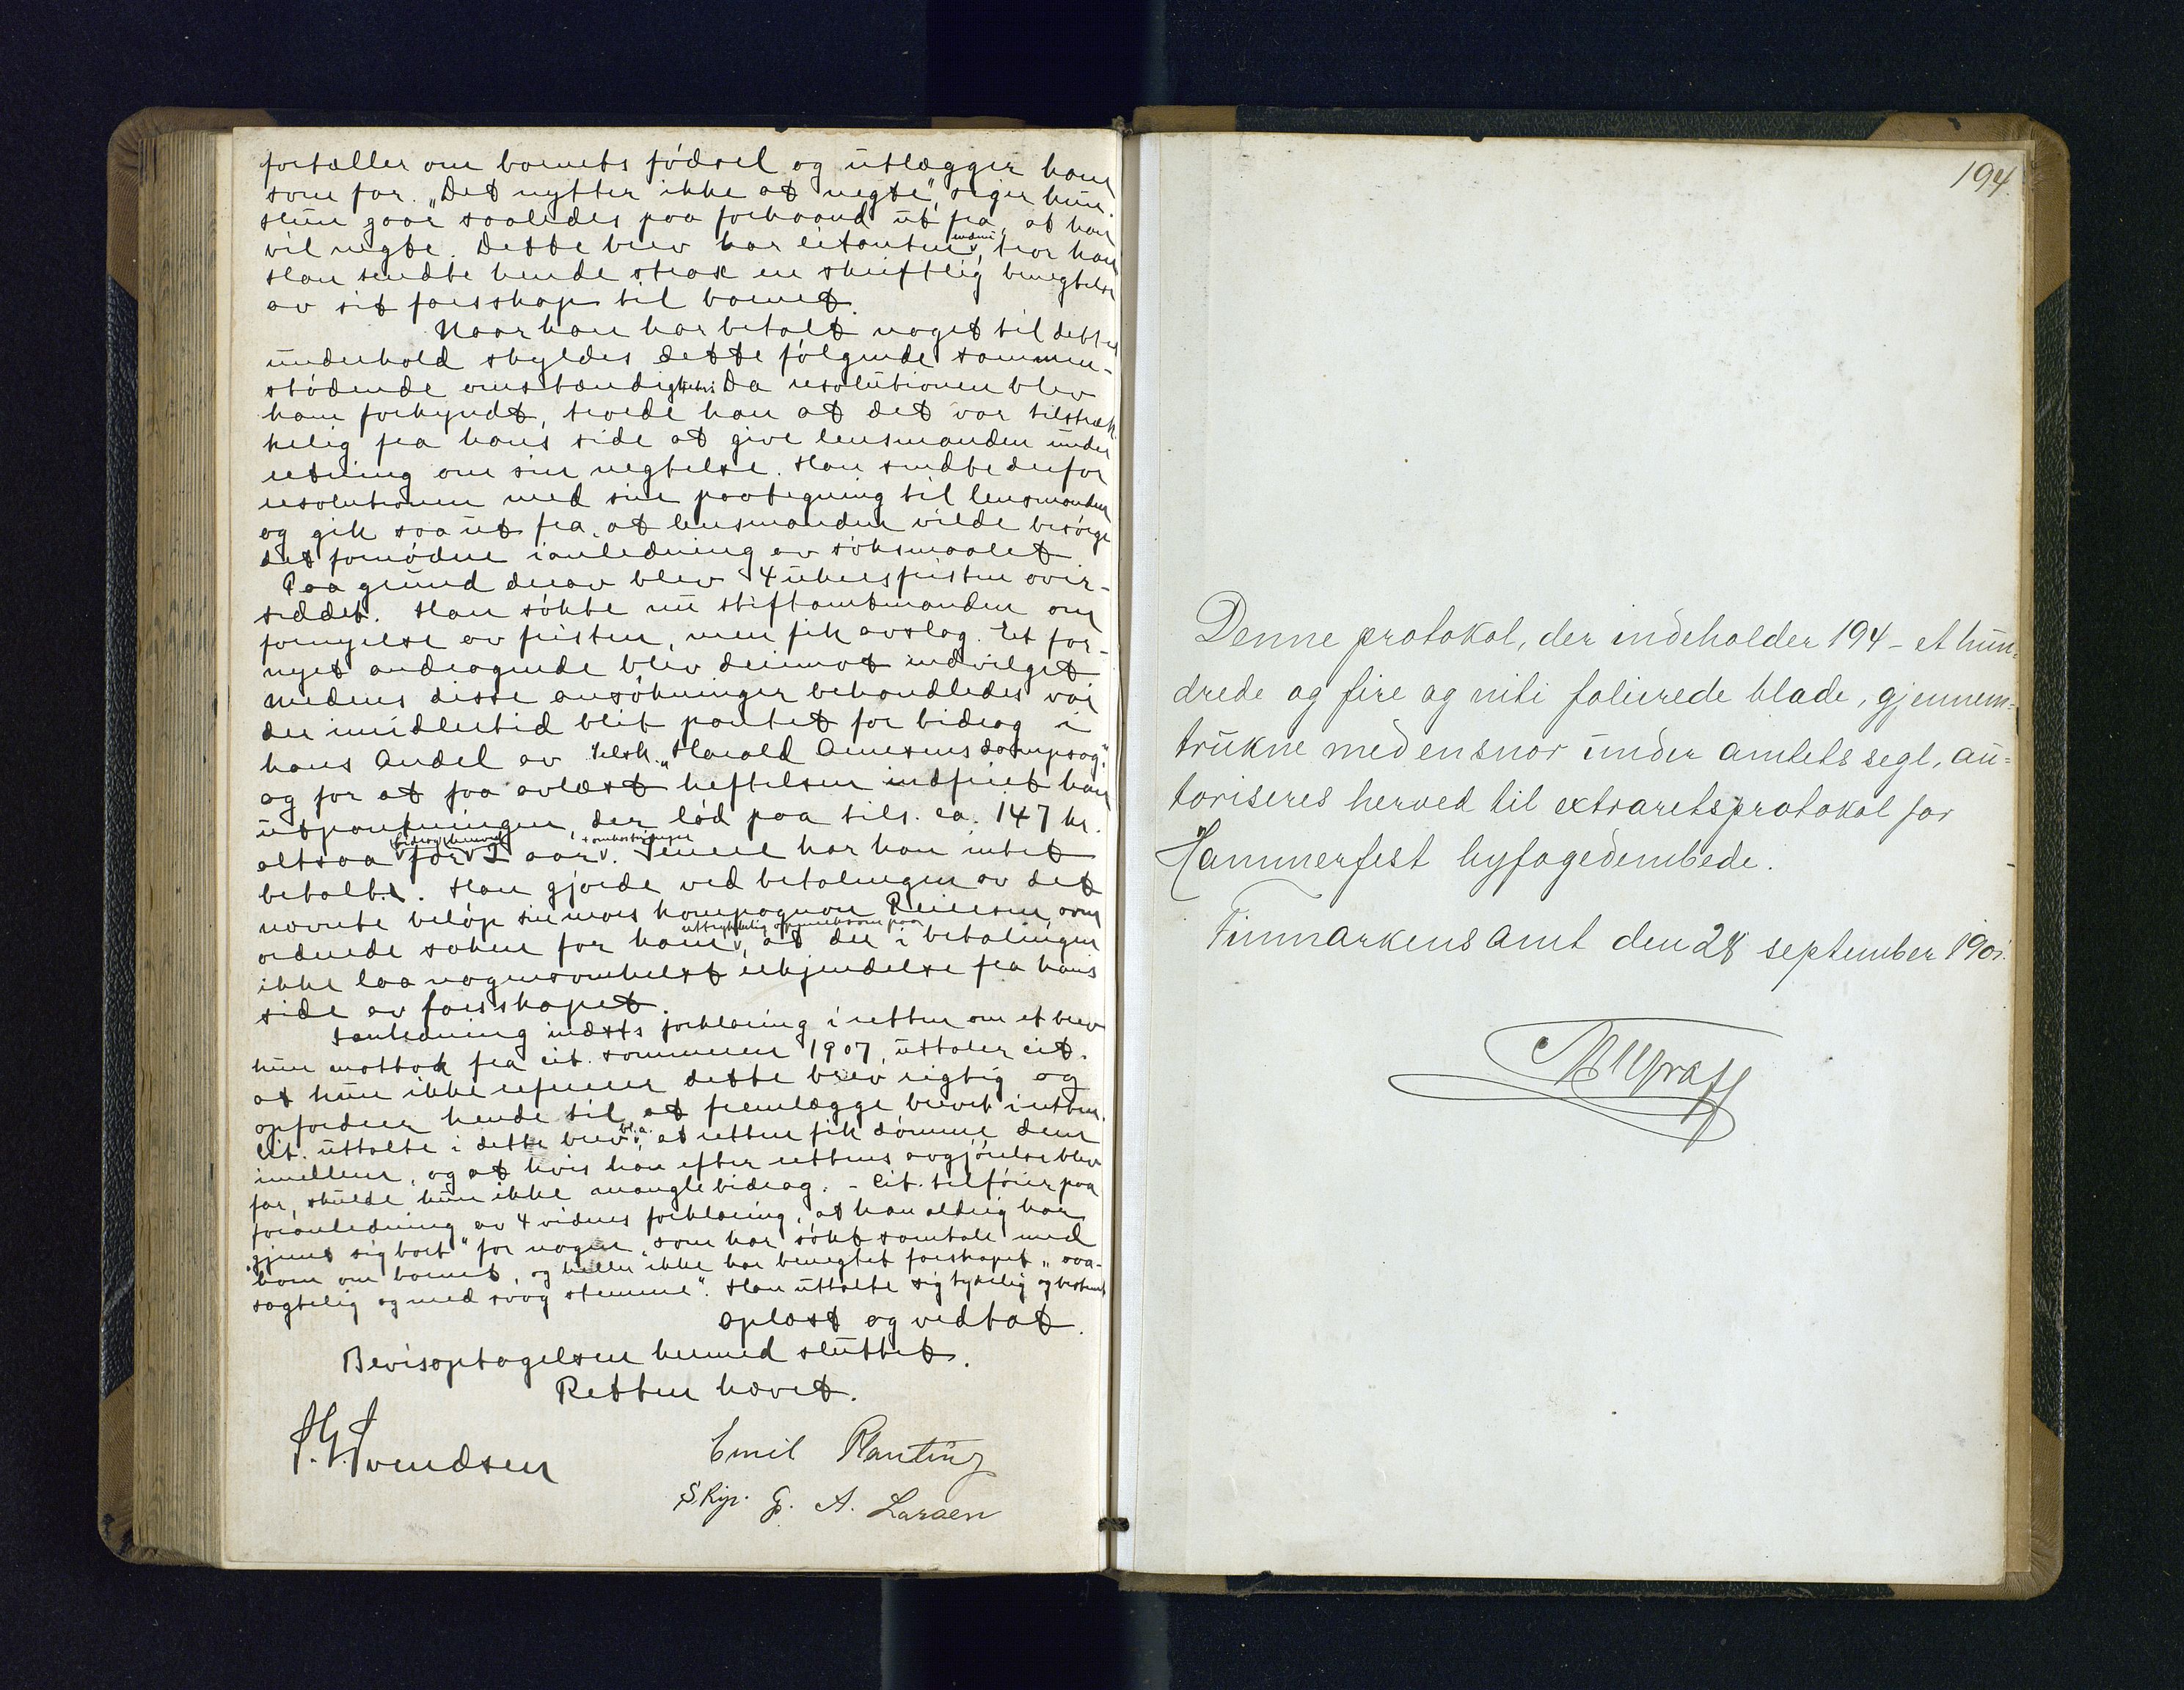 fortæller om barnets fødsel og utlægger ham
som far. „Det nytter ikke at negte", siger hun.
Hun gaar saaledes paa forhaand ut fra, at han
vil negte. Dette brev har citanten endnu, tror han
Han sendte hende strax en skriftlig benegtelse
av sit farsskap til barnet.
Naar han har betalt noget til dets
underhold skyldes dette følgende sammen-
stødende omstændigheter: Da resolutionen blev
ham forkyndt, troede han at det var tilstræk-
kelig fra hans side at give lensmanden under
retning om sin negtelse. Han sendte derfor
resolutionen med sin paategning til lensmanden
og gik saa ut fra, at lensmanden vilde besørge
det fornødne i anledning av søksmaalet
Paa grund derav blev 4 ukersfristen over-
siddet. Han søkte nu stiftamtmanden om
fornyelse av fristen, men fik avslag. Et for-
nyet andragende blev derimot indvilget
Medens disse ansøkninger behandledes var
der imidlertid blit pantet for bidrag i
hans Andel av selsk. „Harald Arnesens dampsag"
og for at faa avlæst heftelsen indfriet han
utpantningen, der lød paa tils. ca. 147 kr.
altsaa bidrag for 2 aar + omkostninger. Senere har han intet
betalt. Han gjorde ved betalingen av det
nævnte beløp sin mors kompagnon Reiersen, som
ordnede saken for ham, uttrykkelig opmerksom paa at der i betalingen
ikke laa nogensomhelst erkjendelse fra hans
side av farsskapet.
I anledning indsts forklaring i retten om et brev
hun mottok fra cit. sommeren 1907, uttaler cit.
at hun ikke refererer dette brev rigtig og
opfordrer hende til at fremlægge brevet i retten.
Cit. uttalte i dette brev bl.a. at retten fik dømme dem
imellem, og at hvis han efter rettens avgjørelse blev
far, skulde hun ikke mangle bidrag. – Cit. tilføier paa
foranledning av 4 vidnes forklaring, at han aldrig har
„gjemt sig bort" for nogen, som har søkt samtale med
ham om barnet, og heller ikke har benegtet farskapet „saa-
sagtelig og med svag stemme". Han uttalte sig tydelig og bestemt
Oplæst og vedtat.
Bevisoptagelsen hermed sluttet.
Retten hævet.
Svendsen
Emil Planting
Skip. G. A. Larsen
194.
Denne protokol, der indeholder 194 – et hun=
drede og fire og niti folierede blade, gjennem=
trukne med en snor under amtets segl, au=
toriseres herved til extraretsprotokol for
Hammerfest byfogedembede.
Finmarkens amt den 28 september 1901.
Graff